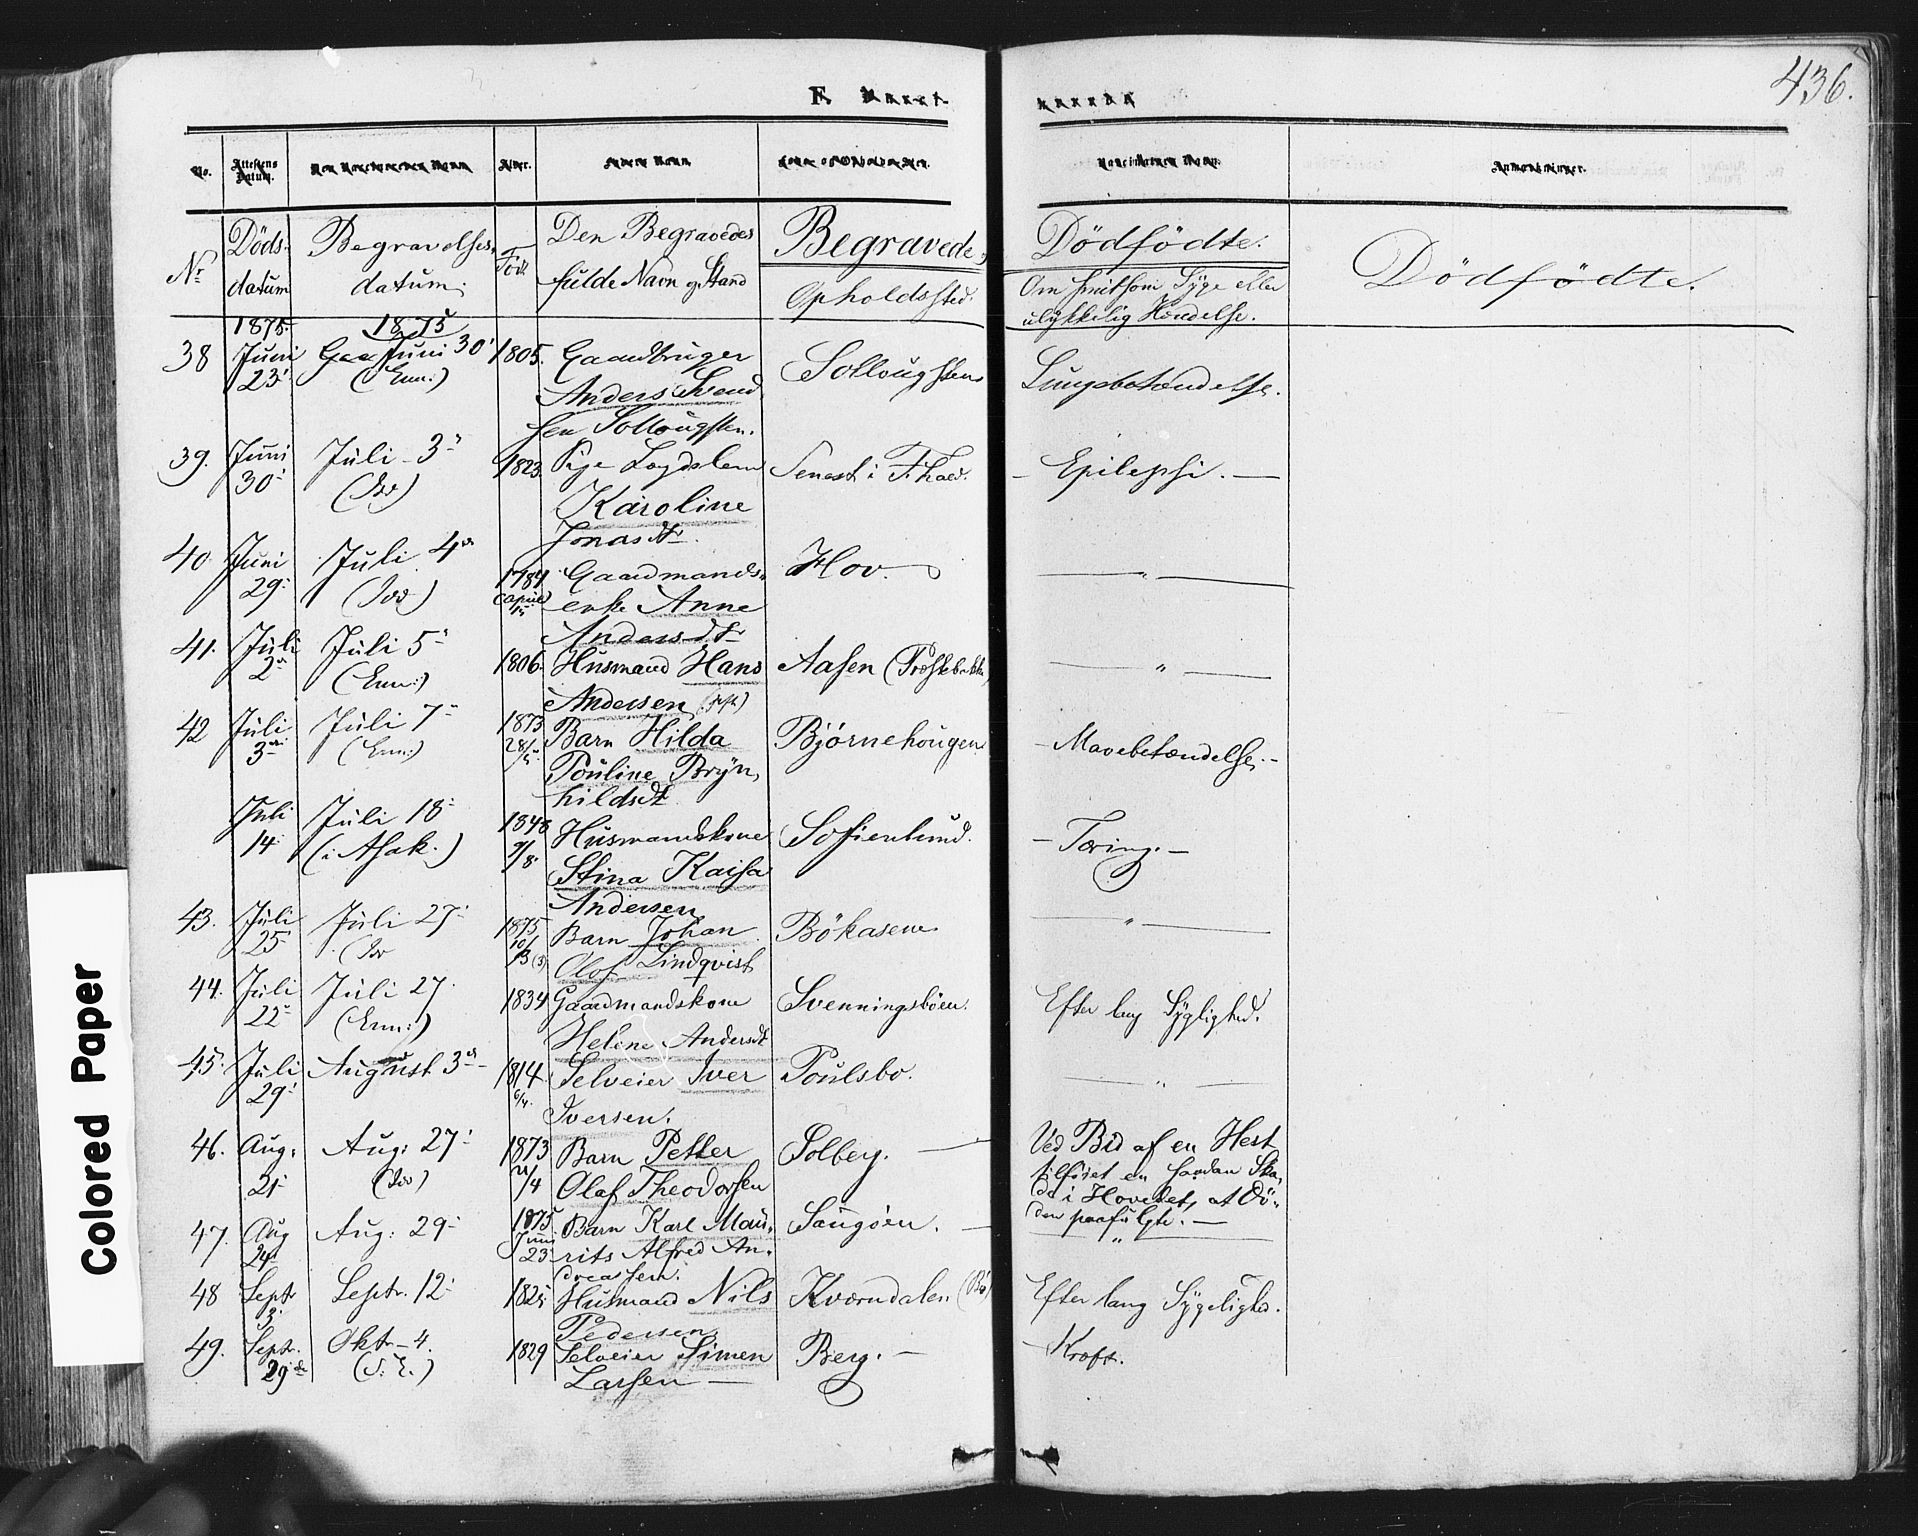 436.
No.
Attestens
Datum.
Alder.
Anmærkninger.
Nr
Döds-
datum
Begravelses-
datum.
Föd.
Den Begravedes
fulde Navn og Stand
Begravede
Opholdssted.
Dödfödte.
Om smitsom Syge eller
ulykkelig Hændelse.
Dödfödte.
1875.
1875
38
Juni
23
Juni 30
(Enn:)
1805.
Gaardbruger
Anders Svend
sen Sollougsten.
Sollougsten
Lungebetændelse.
39.
Juni
30
Juli 3
(Idd)
1823
Pige Logdslem
Karoline
Jonasdtr.
Senest i F.hald.
- Epilepsi. -
40
Juni
29
Juli 4de
(Idd)
1784
(April
15
Gaardmands-
enke Anne
Andersdtr
Hov.
"
41.
Juli
2
Juli 5
(Enn:)
1806
Husmand Hans
Andersen
Aasen (Træskebakke)
"
42
Juli
3die
Juli 7
(Enn:)
1873
28/5
Barn Hilda
Pouline Bryn-
hildsdt.
Bjørnehougen
- Mavebetændelse. -
Juli
14
Juli 18
(i Asak.)
1848
9/8
Husmandskone
Stina Kaisa
Andersen
Sofienlund.
- Tæring. -
43.
Juli
25
Juli 27
(Idd
1875
10/1
13 (3)
Barn Johan
Olof Lindqvist
Bökasene
"
44.
Juli
22
Juli 27.
(Enn:)
1834
Gaardmandskone
Helene Andersdt
Svenningsbøen.
Efter lang Sygelighed.
45.
Juli
29
August 3de
1814
6/4.
Selveier Iver
Iversen.
Poulsbo.
"
46.
Aug.
21
Aug: 27
(Idd)
1873
21/4
Barn Petter
Olaf Theodorsen
Solberg.
Ved Bid af en Hest
tilföiet en saadan Ska-
de i Hovedet, at Dö-
den paafulgte. -
47.
Aug
24
Aug: 29
1875
Juni
23
Barn Karl Mau-
rits Alfred An-
dreassen.
Saugøen.
"
48
Septr
3
Septr. 12
1825
Husmand Nils
Pedersen
Kværndalen (Bø)
Efter lang Sygelighed.
49.
Septr.
29de
Oktr. 4.
(S. E.)
1829
Selveier Simen
Larsen
Berg. -
- Kræft.
Colored Paper